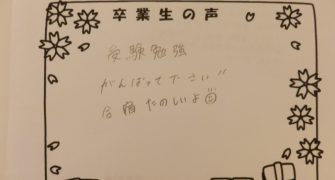 卒業生の声
受験勉強
がんばって下さい!!
合宿たのしいよ